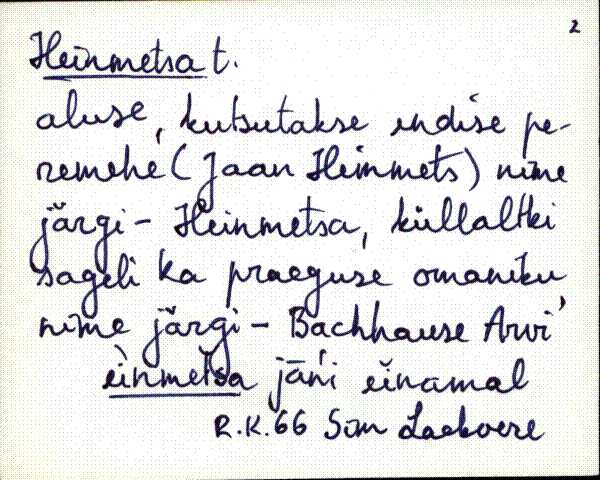 2
Heinmetsa t.
aluse, kutsutakse endise pe-
remehe (Jaan Heinmets) nime
järgi - Heinmetsa, küllaltki
sageli ka praeguse omaniku
nime järgi - Bachhause Arvi'
èinmetsa jāńi einamal
R.K.66 Sim Laekvere